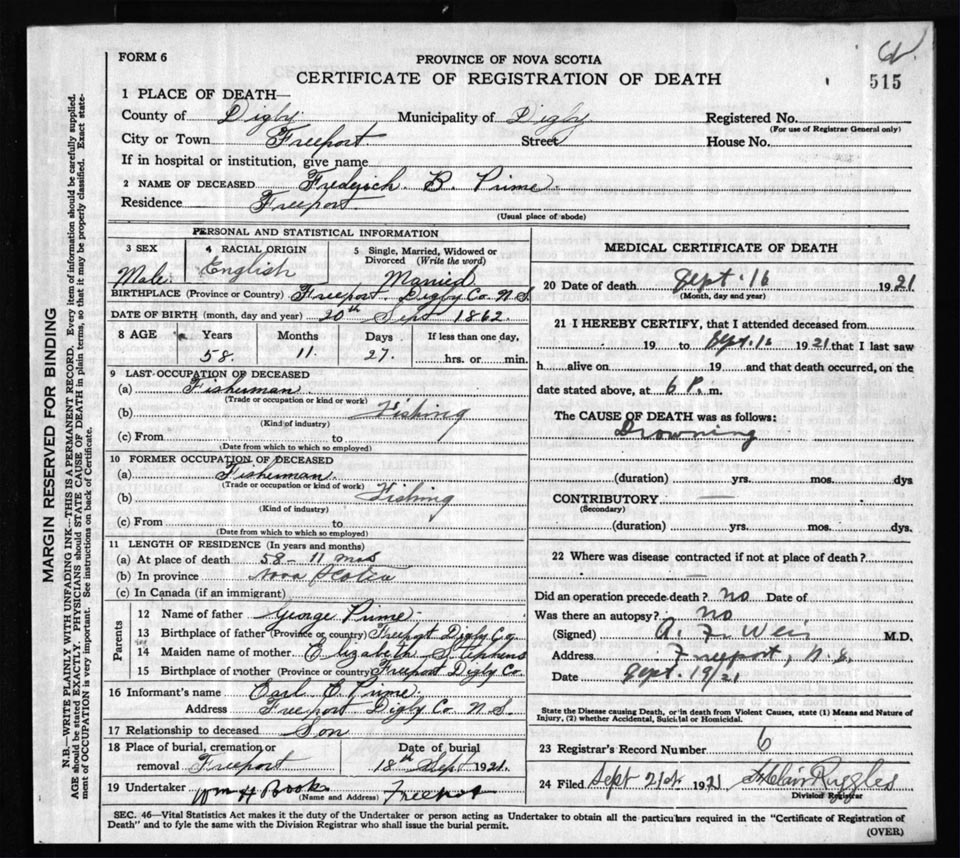 FORM 6
PROVINCE OF NOVA SCOTIA
CERTIFICATE OF REGISTRATION OF DEATH
515
1 PLACE OF DEATH—
County of Digby Municipality of Digby Registered No.
(For use of Registrar General only)
City or Town Freeport Street House No.
If in hospital or institution, give name
2 NAME OF DECEASED Frederick B. Prime.
Residence Freeport.
(Usual place of abode)
PERSONAL AND STATISTICAL INFORMATION
3 SEX 4 RACIAL ORIGIN 5 Single, Married, Widowed or Divorced (Write the word)
Male. English Married
BIRTHPLACE (Province or Country) Freeport Digby Co. N.S
DATE OF BIRTH (month, day and year) 20th Sept 1862.
8 AGE Years Months Days If less than one day,
58. 11. 27. hrs. or min.
9 LAST OCCUPATION OF DECEASED
(a) Fisherman
(Trade or occupation or kind or work)
(b) Fishing
(Kind of industry)
(c) From to
(Date from which to which so employed)
10 FORMER OCCUPATION OF DECEASED
(a) Fisherman.
(Trade or occupation or kind of work)
(b) Fishing
(Kind of industry)
(c) From to
(Date from which to which so employed)
11 LENGTH OF RESIDENCE (In years and months)
(a) At place of death 58 - 11 mos
(b) In province Nova Scotia
(c) In Canada (if an immigrant)
Parents
12 Name of father George Prime.
13 Birthplace of father (Province or country) Freeport Digby Co.
14 Maiden name of mother Elizabeth Stephens
15 Birthplace of mother (Province or country) Freeport Digby Co.
16 Informant's name Earl C. Prime.
Address Freeport Digby Co N.S.
17 Relationship to deceased Son
18 Place of burial, cremation or removal Freeport Date of burial 18th Sept 1921.
19 Undertaker Wm H Books Freeport
(Name and Address)
MEDICAL CERTIFICATE OF DEATH
20 Date of death Sept. 16 1921
(Month, day and year)
21 I HEREBY CERTIFY, that I attended deceased from
19 to Sept. 16 1921 that I last saw
h alive on 19 and that death occurred, on the
date stated above, at 6 P. m.
The CAUSE OF DEATH was as follows:
Drowning
(duration) yrs. mos. dys
CONTRIBUTORY
(Secondary)
(duration) yrs. mos. dys.
22 Where was disease contracted if not at place of death?
Did an operation precede death? no Date of
Was there an autopsy? no
(Signed) A. F. Weir M.D.
Address Freeport, N.S.
Date Sept. 19/21
State the Disease causing Death, or in death from Violent Causes, state (1) Means and Nature of
Injury, (2) whether Accidental, Suicidal or Homicidal.
23 Registrar's Record Number 6
24 Filed Sept 21st 1921 Ruggles
Division Registrar
SEC. 46—Vital Statistics Act makes it the duty of the Undertaker or person acting as Undertaker to obtain all the particulars required in the "Certificate of Registration of
Death" and to fyle the same with the Division Registrar who shall issue the burial permit.
(OVER)
MARGIN RESERVED FOR BINDING
N.B.—WRITE PLAINLY WITH UNFADING INK—THIS IS A PERMANENT RECORD. Every item of information should be carefully supplied.
AGE should be stated EXACTLY. PHYSICIANS should STATE CAUSE OF DEATH in plain terms, so that it may be properly classified. Exact state-
ment of OCCUPATION is very important. See instructions on back of Certificate.